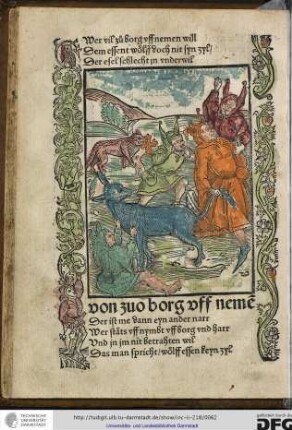 Wer vil zuͦ borg vffnemen will
Dem essent wölff doch nit syn zyl/
Der esel schlecht jn vnderwil
von zuo borg vff nemē
Der ist me dann eyn ander narr
Wer stäts vffnymbt vff borg vnd harr
Vnd jn jm nit betrahten wil
Das man spricht/ wölff essen keyn zyl
http://tudigit.ulb.tu-darmstadt.de/show/inc-ii-218/0062
Universitäts- und Landesbibliothek Darmstadt
gefördert durch die
DFG